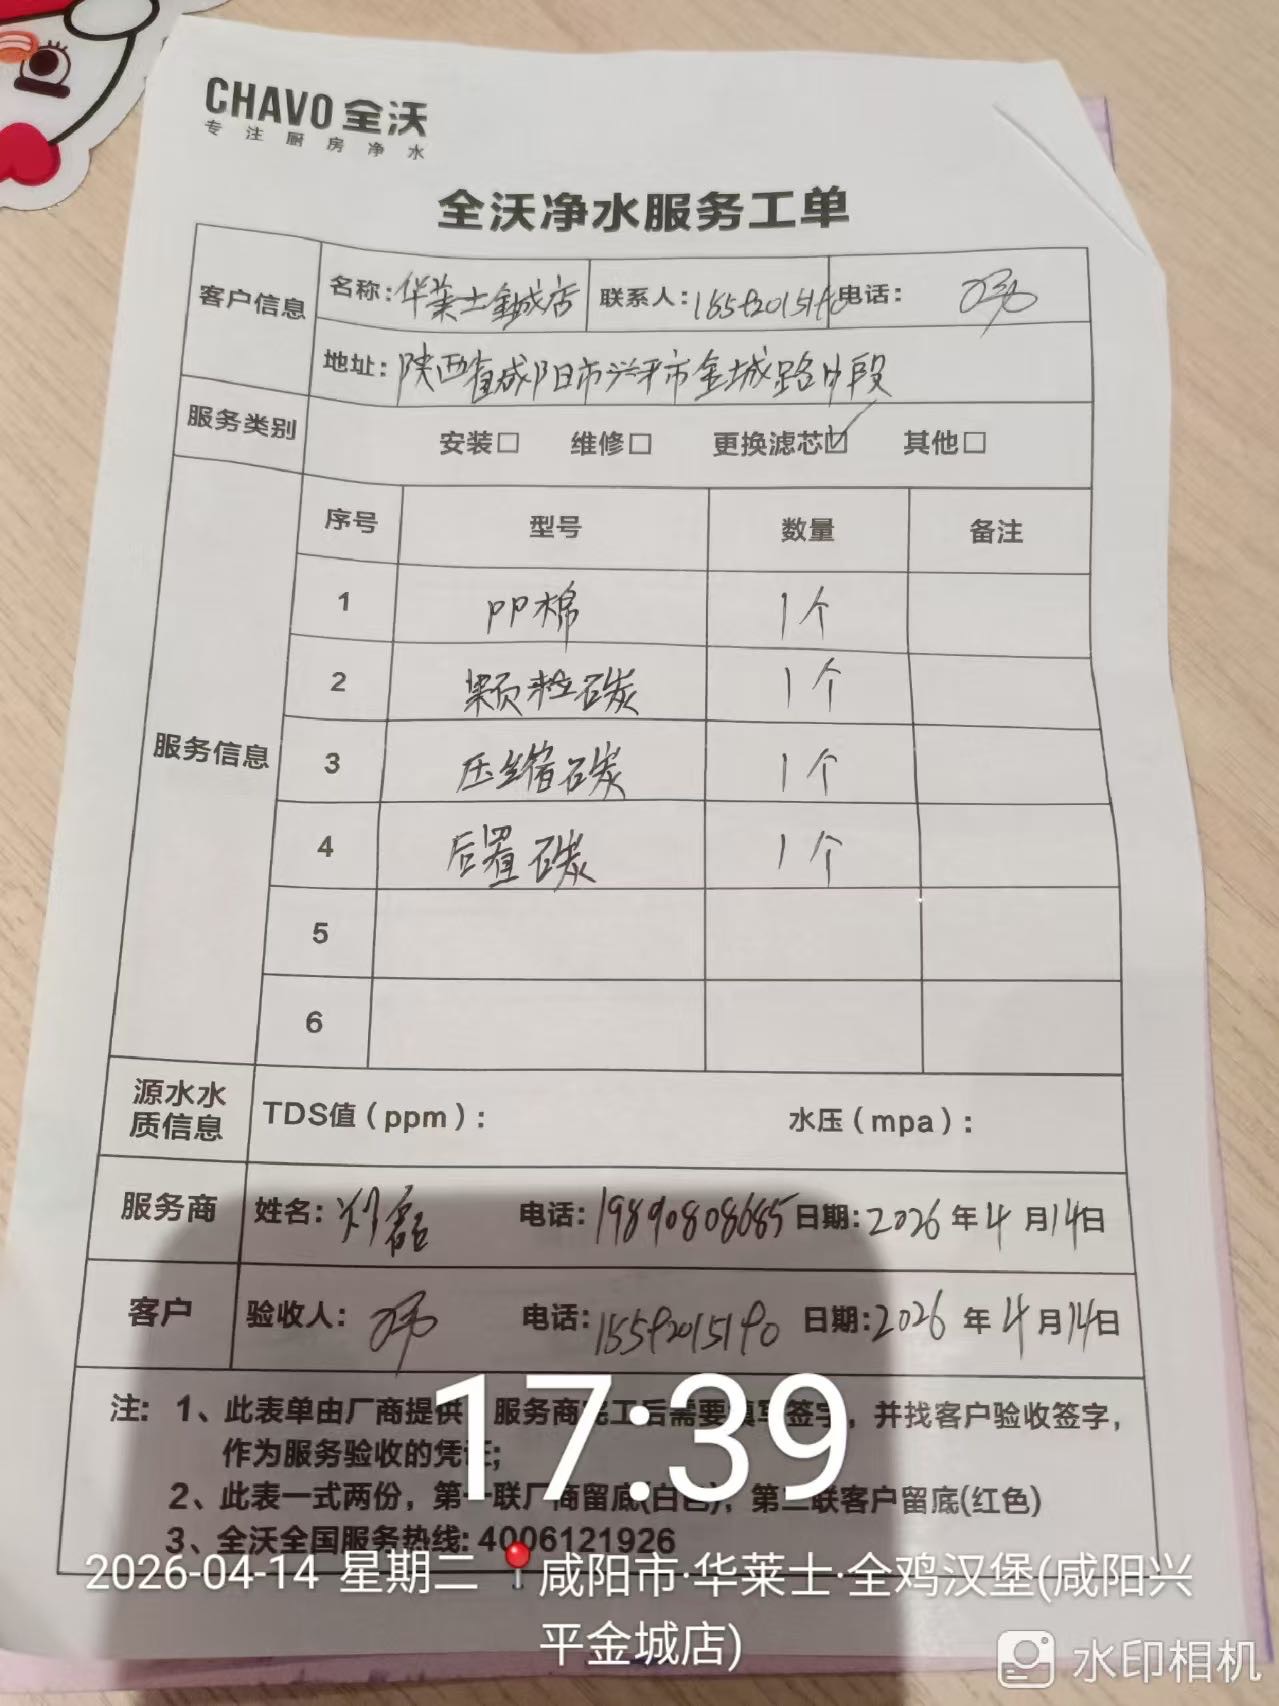 CHAVO 全沃
专注厨房净水
全沃净水服务工单
客户信息 名称:华莱士金城店 联系人: 电话:
地址:陕西省咸阳市兴平市金城路中段
服务类别 安装□ 维修□ 更换滤芯☑ 其他□
服务信息
序号 型号 数量 备注
1 PP棉 1个
2 颗粒碳 1个
3 压缩碳 1个
4 后置碳 1个
5
6
源水水质信息 TDS值(ppm): 水压(mpa):
服务商 姓名: 电话:19890808685 日期:2026年4月14日
客户 验收人: 电话: 日期:2026年4月14日
注: 1、此表单由厂商提供,服务商完工后需要填写签字,并找客户验收签字,
作为服务验收的凭证;
2、此表一式两份,第一联厂商留底(白色),第二联客户留底(红色)
3、全沃全国服务热线:4006121926
17:39
2026-04-14 星期二 咸阳市·华莱士·全鸡汉堡(咸阳兴
平金城店)
水印相机